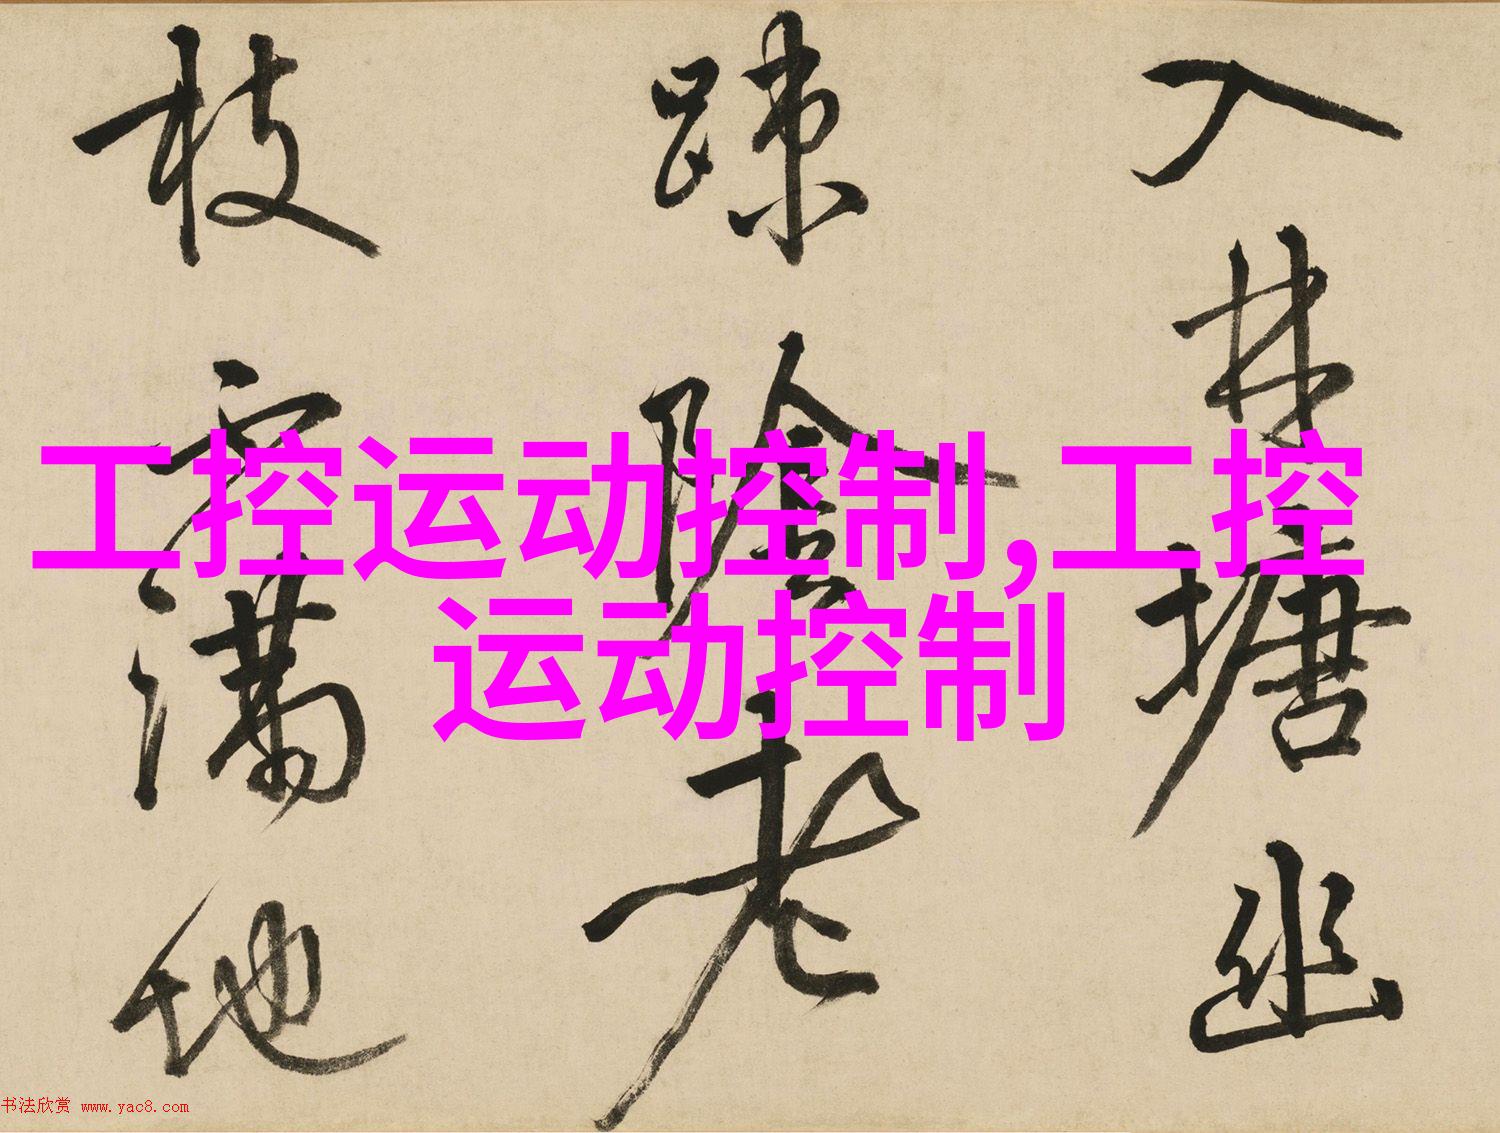 入林塘幽
踈陰老
枝滿地
工控运动控制,工控
运动控制
书法欣赏 www.yac8.com